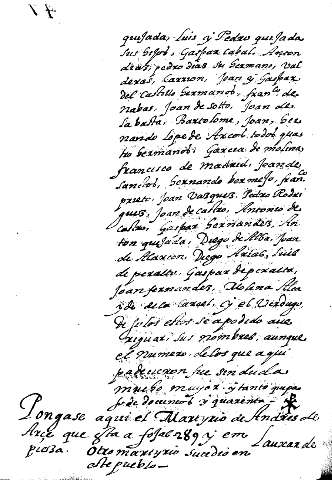 quijada, Luis y Pedro quijada
sus hijos, Gaspar Cabal, Anton
dias, pedro dias su hermano, Val
deras, Carrion, Joan y Gaspar
del Castillo hermanos, fran.co de
nabas, Joan de Sotto, Joan de
la basta, Bartolome, Joan, her
nando Lopes de Arcos, todos qua
tro hermanos Garcia de molina
francisco de madrid, Joan de
Sanctos, hernando bermejo, fran.co
prieto, Joan Vasques, Pedro Rodri
gues, Joan de Castro, Antonio de
Castro, Gaspar hernandes, An
ton quijada, Diego de Alba, Joan
de Alarcon, Diego Arias, Luis
de peralta, Gaspar de peralta,
Joan fernandes, Molina Alca
yde de la Carcel, y el Verdugo,
de solos estos se a podido ave
riguar sus nombres, aunque
el numero de los que aqui
padecieron fue sin duda
mucho mayor y tanto que pa
so de docientos y quarenta
Pongase aqui el Martyrio de Andres de
Arce que esta a fojas 289 y em
pieza. Otro martyrio sucedio en Lauxar de
este pueblo